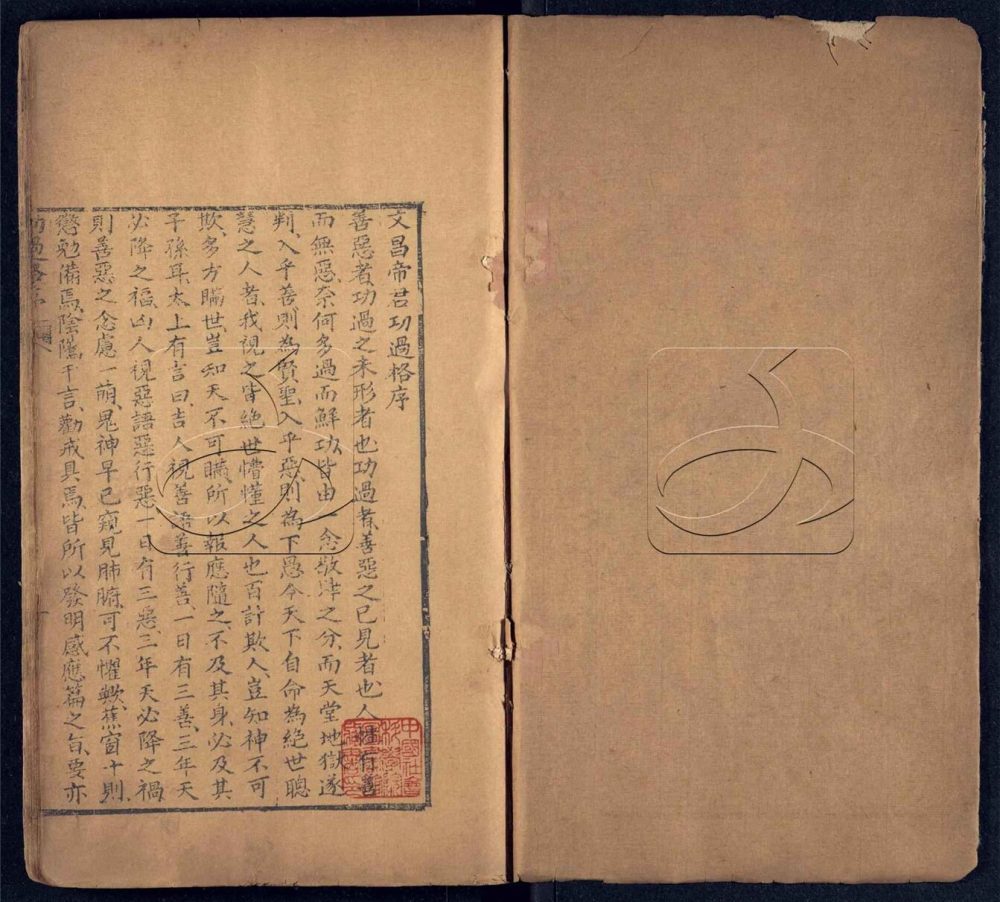 文昌帝君功過格序
善惡者、功過之未形者也、功過者、善惡之已見者也、人惟行善
而無惡、奈何多過而鮮功、皆由一念敬肆之分、而天堂地獄遂
判、入乎善則為賢聖、入乎惡則為下愚、今天下自命為絕世聰
慧之人者、我視之皆絕世懵懂之人也、百計欺人、豈知神不可
欺、多方瞞世、豈知天不可瞞、所以報應隨之、不及其身、必及其
子孫耳、太上有言曰、吉人視善語善行善、一日有三善、三年天
必降之福、凶人視惡語惡行惡、一日有三惡、三年天必降之禍
則善惡之念慮一萌、鬼神早已窺見肺腑、可不懼歟、蕉窗十則、
懲勉備焉、陰隲千言、勸戒具焉、皆所以發明感應篇之旨、要亦
功過格序 一
中國社會科學院
藏書